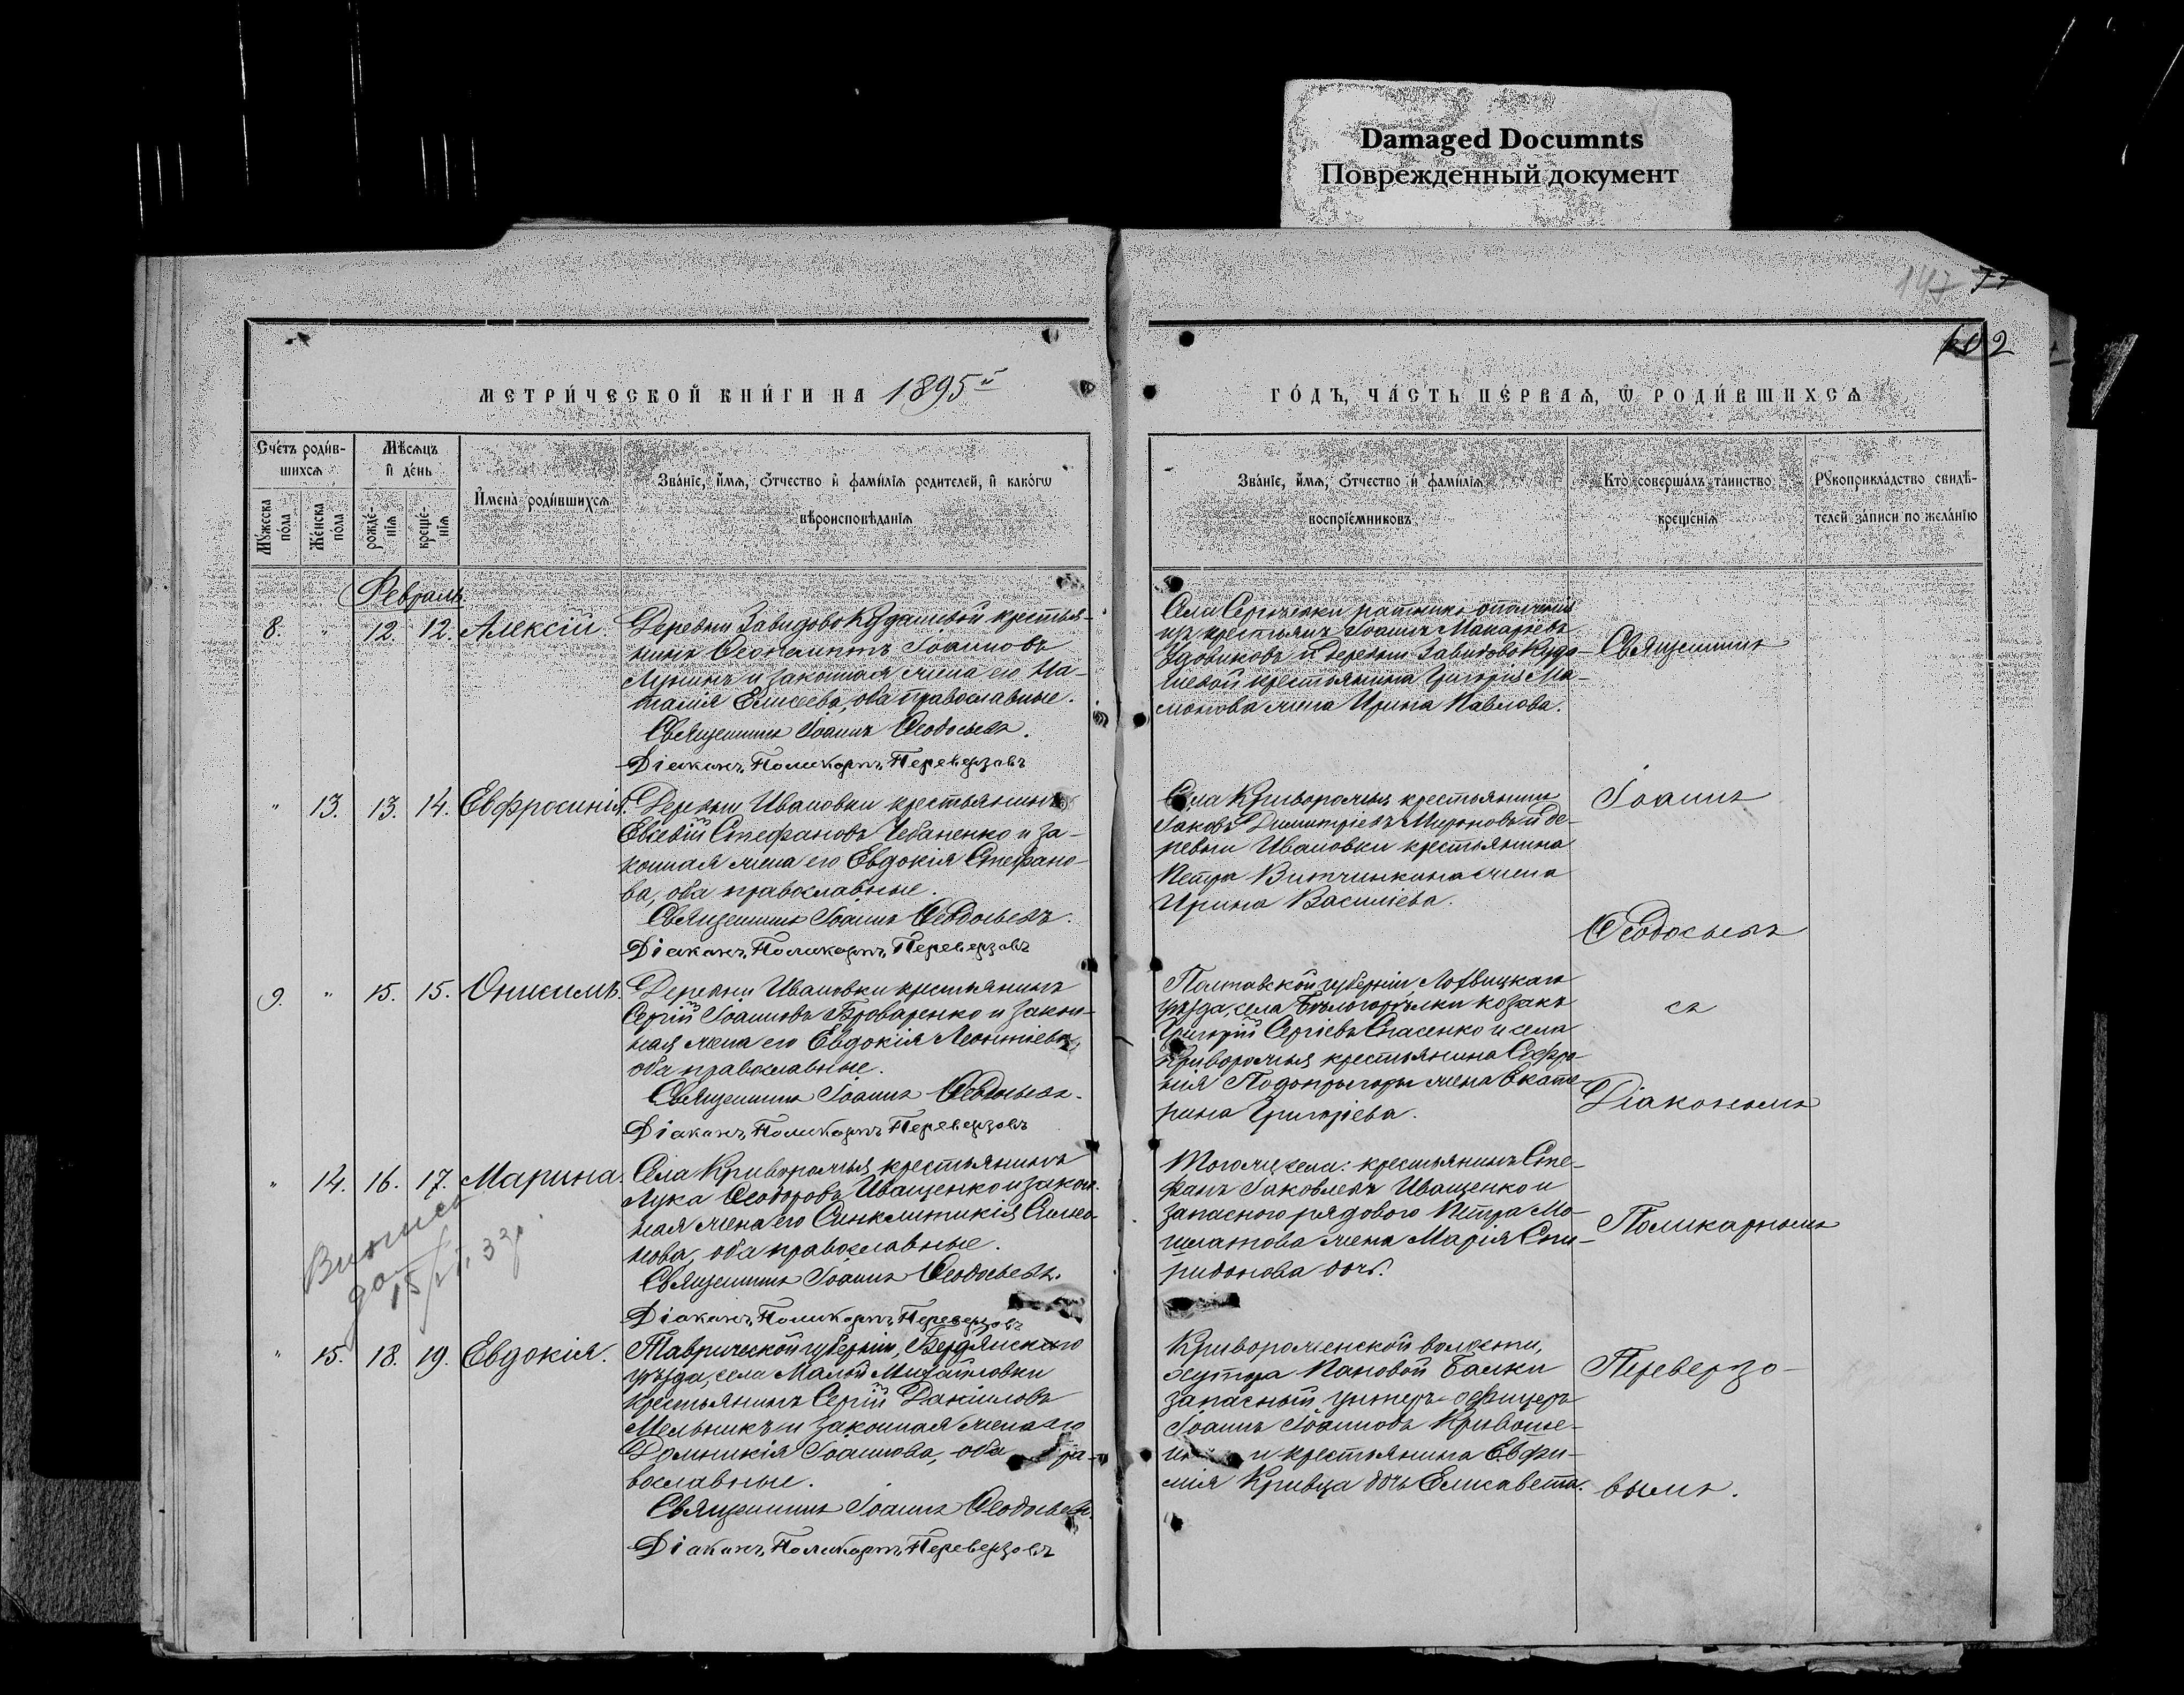 Damaged Documnts
Поврежденный документ
147 77
102
МЕТРИ́ЧЕСКОЙ КНИ́ГИ НА 1895й
ГО́ДЪ, ЧА́СТЬ ПЕ́РВАѦ, Ѿ РОДИ́ВШИХСѦ
Сче́тъ роди́в-
шихсѧ
Мꙋ́жеска по́ла
Же́нска по́ла
Мѣ́сѧцъ
и҆ де́нь
рожде́-
нїѧ
креще́-
нїѧ
И҆мена̀ роди́вшихсѧ
Зва́нїе, и҆́мѧ, ѻ҆́тчество и҆ фамн́лїѧ родителей, и҆ како́гѡ
вѣроисповѣ́данїѧ
Зва́нїе, и҆́мѧ, ѻ҆́тчество и҆ фами́лїѧ
воспрїе́мниковъ
Кто̀ соверша́лъ та́инство
креще́нїѧ
Рꙋкоприкла́дство свидѣ́-
телей за́писи по жела́нїю
Февраль
8. " 12. 12. Алексій.
Деревни Завидово Кудашевой крестья-
нинъ Іоанновъ
Лунинъ и законная жена его На-
талія Елисеева, оба православные.
Священникъ Іоаннъ Ѳеодосьевъ.
Діаконъ Поликарпъ Переверзовъ
Села Сергѣевки ратникъ ополченія
изъ крестьянъ Іоаннъ Макаріевъ
Удовиковъ и деревни Завидово Куда-
шевой крестьянина Григорія Ма-
монова жена Ирина Павлова.
" 13. 13. 14. Евфросинія.
Деревни Ивановки крестьянинъ
Евсевій Стефановъ Чебаненко и за-
конная жена его Евдокія Стефано-
ва, оба православные.
Священникъ Іоаннъ Ѳеодосьевъ.
Діаконъ Поликарпъ Переверзовъ
Села Криворожья крестьянинъ
Іаковъ Димитріевъ Мироновъ и де-
ревни Ивановки крестьянина
Петра жена
Ирина Василіева.
9. " 15. 15. Онисимъ.
Деревни Ивановки крестьянинъ
Сергій Іоанновъ Броваренко и закон-
ная жена его Евдокія Леонтіева,
оба православные.
Священникъ Іоаннъ Ѳеодосьевъ.
Діаконъ Поликарпъ Переверзовъ
Полтавской губерніи Лохвицкаго
уѣзда, села козакъ
Григорій Сергіевъ Спасенко и села
Криворожья крестьянина Софро-
нія Подопригоры жена Екате-
рина Григоріева.
" 14. 16. 17. Марина.
Села Криворожья крестьянинъ
Лука Ѳеодоровъ Иващенко и закон-
ная жена его Синклитикія Симео-
нова, оба православные.
Священникъ Іоаннъ Ѳеодосьевъ.
Діаконъ Поликарпъ Переверзовъ
Того же села: крестьянинъ Сте-
фанъ Іаковлевъ Иващенко и
запасного рядового Петра Мо-
жена Марія Спи-
ридонова дочь.
" 15. 18. 19. Евдокія.
Таврической губерніи, Бердянскаго
уѣзда, села Малой Михайловки
крестьянинъ Сергій Даніиловъ
Мельникъ и законная жена его
Домникія Іоаннова, оба пра-
вославные.
Священникъ Іоаннъ Ѳеодосьевъ.
Діаконъ Поликарпъ Переверзовъ
Кривороженской волости,
хутора Пановой Балки
запасный унтеръ-офицеръ
Іоаннъ Іоанновъ
и крестьянина Евфи-
мія Кривца дочь Елисавета.
Священникъ
Іоаннъ
Ѳеодосьевъ
съ
Діакономъ
Поликарпомъ
Переверзо-
вымъ.